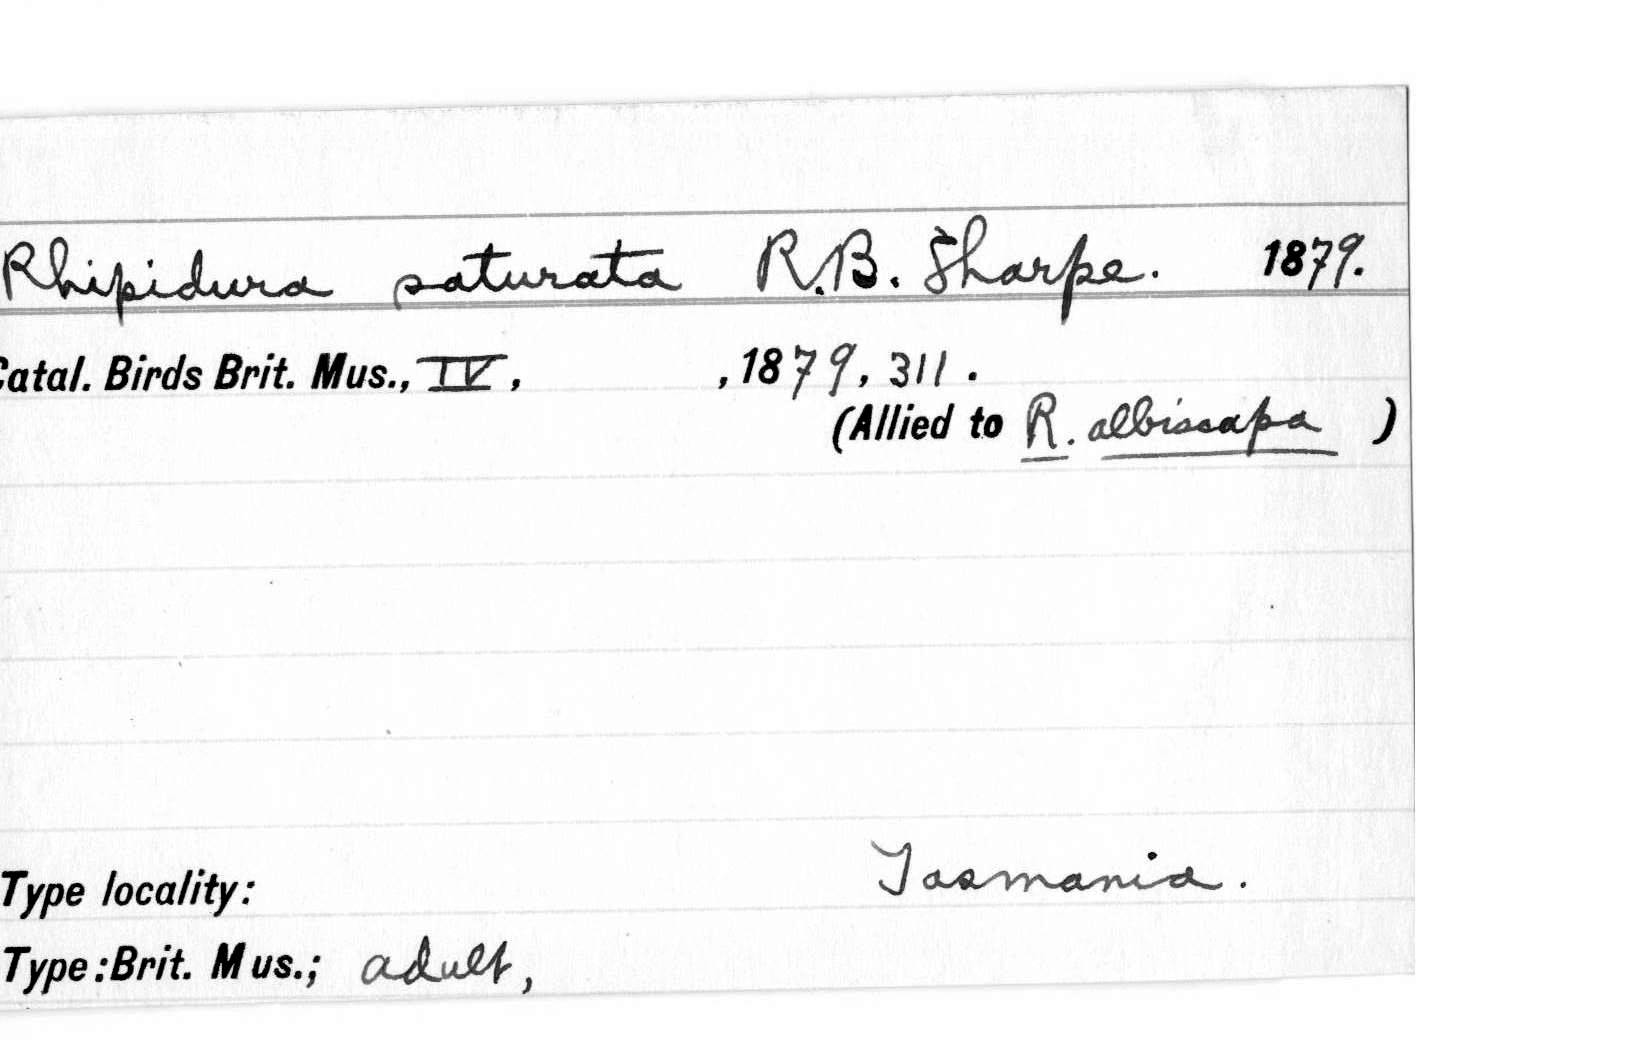 Rhipidura saturata R.B. Sharpe. 1879.
Catal. Birds Brit. Mus., IV, , 1879, 311.
(Allied to R. albiscapa )
Type locality: Tasmania.
Type: Brit. Mus.; adult,